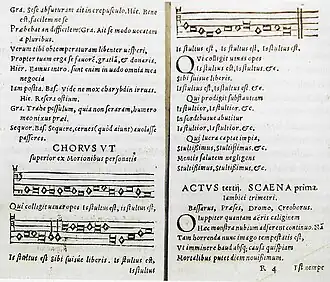 Gra. Si se absutum sit in crepusculo. Hic. Bene
est, facilem non se
Præbebat an difficilem: Gra. Ait se modo uocatum
a pluribus.
Verum tibi obtemperaturum libenter
Propter tuum erga se fauorē, gratiā, & donaria.
Hier. Eamus intro. sunt enim in uado omnia mea
negocia
Iam posita. Bas. Vide ne mox charybdin irruas.
Hic. Resera ostium.
Gra. Trahe pessulum, quid non seraram, hunc
meo nixus præ.
Sequor. Bas. Sequere, cernes (quid aiunt) euolasse
passeres.
CHORVS VT
superior ex Morionibus personatis
Qui colligit uenas opes Is stultus est, Is stultus est,
Is stultus est sibi suisue liberis. Is stultus est
is stultus
Is stultus est, Is stultus est, Is stultus est.
Qui colligit uenas opes
Is stultus est, Is stultus est, &c.
Sibi suisue liberis.
Is stultus est, Is stultus est, &c.
Qui prodigit substantiam
Is stultior, Is stultior, &c.
In sordibus ac abutitur
Is stultior, Is stultior, &c.
Qui lucra captat impia,
Stultissimus, Stultissimus, &c.
Mentis salutem negligens
Stultissimus, Stultissimus, &c.
ACTVS tertij. SCAENA prima
Iambici trimetri.
Bassarus, Præses, Dromo, Creoberus.
O Iuppiter quantam aëris caliginem
Hæc monstra nubium adferunt continuò.
Tam horrenda nunc imago tempestatis est,
Vt imminere baud absq; causa quispiam
Mortalibus putet diem nouissimum.
R 4 Ist nempe